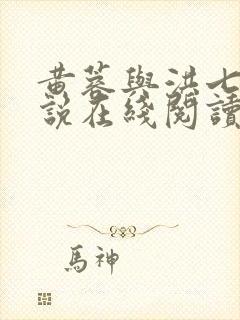 黄蓉與洪七
說在綫閱讀
馬神